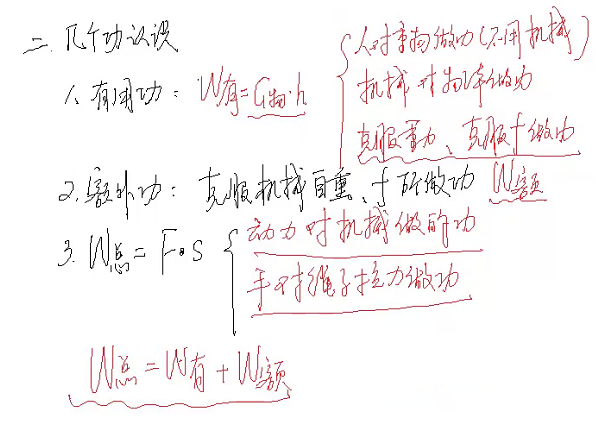 二. 几个功认识
1、有用功: W有=G物·h
人对重物做功(不用机械)
机械对物体做功
克服重力、克服f做功
2.额外功: 克服机械自重、f所做功 W额
3. W总=F·S
动力对机械做的功
手对绳子拉力做功
W总=W有+W额